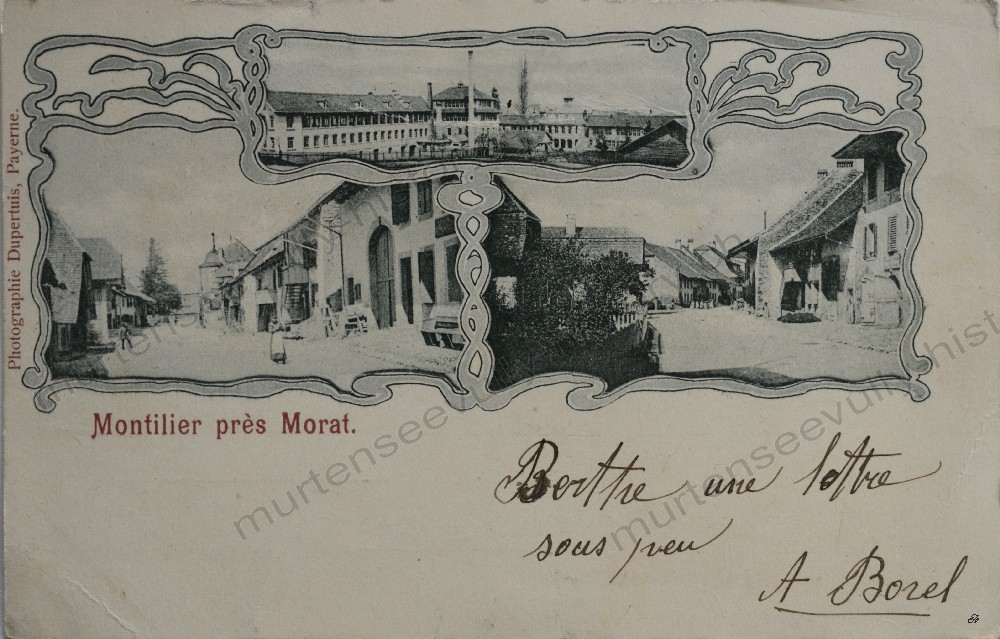 Photographie Dupertuis, Payerne.
Montilier près Morat.
Berthe une lettre
sous peu
A Borel